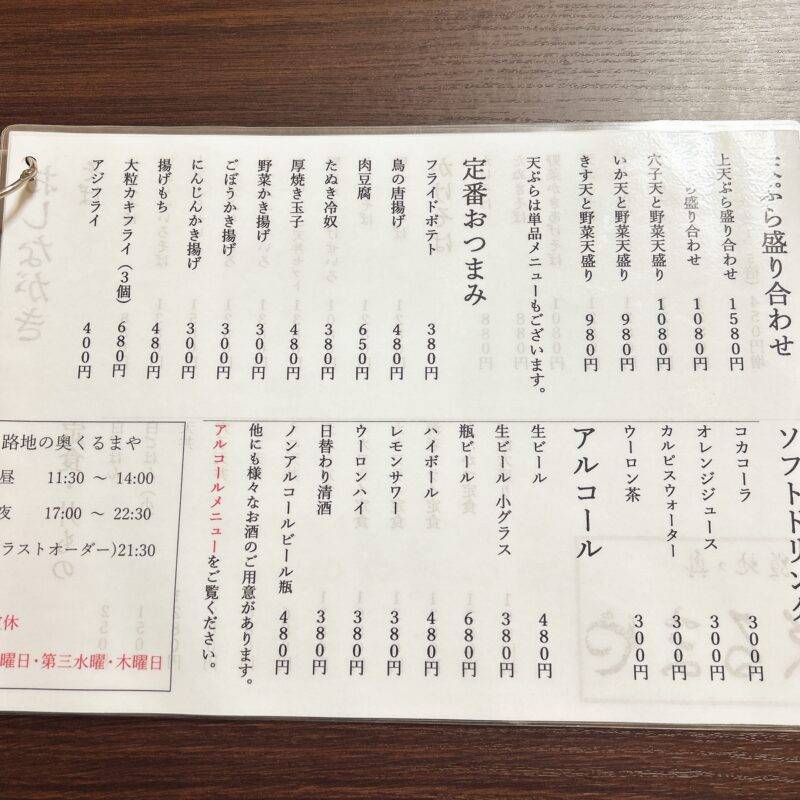 天ぷら盛り合わせ
上天ぷら盛り合わせ 1580円
盛り合わせ 1080円
穴子天と野菜天盛り 1080円
いか天と野菜天盛り 980円
きす天と野菜天盛り 980円
天ぷらは単品メニューもございます。
定番おつまみ
フライドポテト 380円
鳥の唐揚げ 480円
肉豆腐 650円
たぬき冷奴 380円
厚焼き玉子 480円
野菜かき揚げ 300円
ごぼうかき揚げ 300円
にんじんかき揚げ 300円
揚げもち 480円
大粒カキフライ(3個) 680円
アジフライ 400円
ソフトドリンク
コカコーラ 300円
オレンジジュース 300円
カルピスウォーター 300円
ウーロン茶 300円
アルコール
生ビール 480円
生ビール 小グラス 380円
瓶ビール 680円
ハイボール 480円
レモンサワー 380円
ウーロンハイ 380円
日替わり清酒 380円
ノンアルコールビール瓶 480円
他にも様々なお酒のご用意があります。
アルコールメニューをご覧ください。
路地の奥くるまや
昼 11:30 ～ 14:00
夜 17:00 ～ 22:30
ラストオーダー)21:30
休
曜日・第三水曜・木曜日